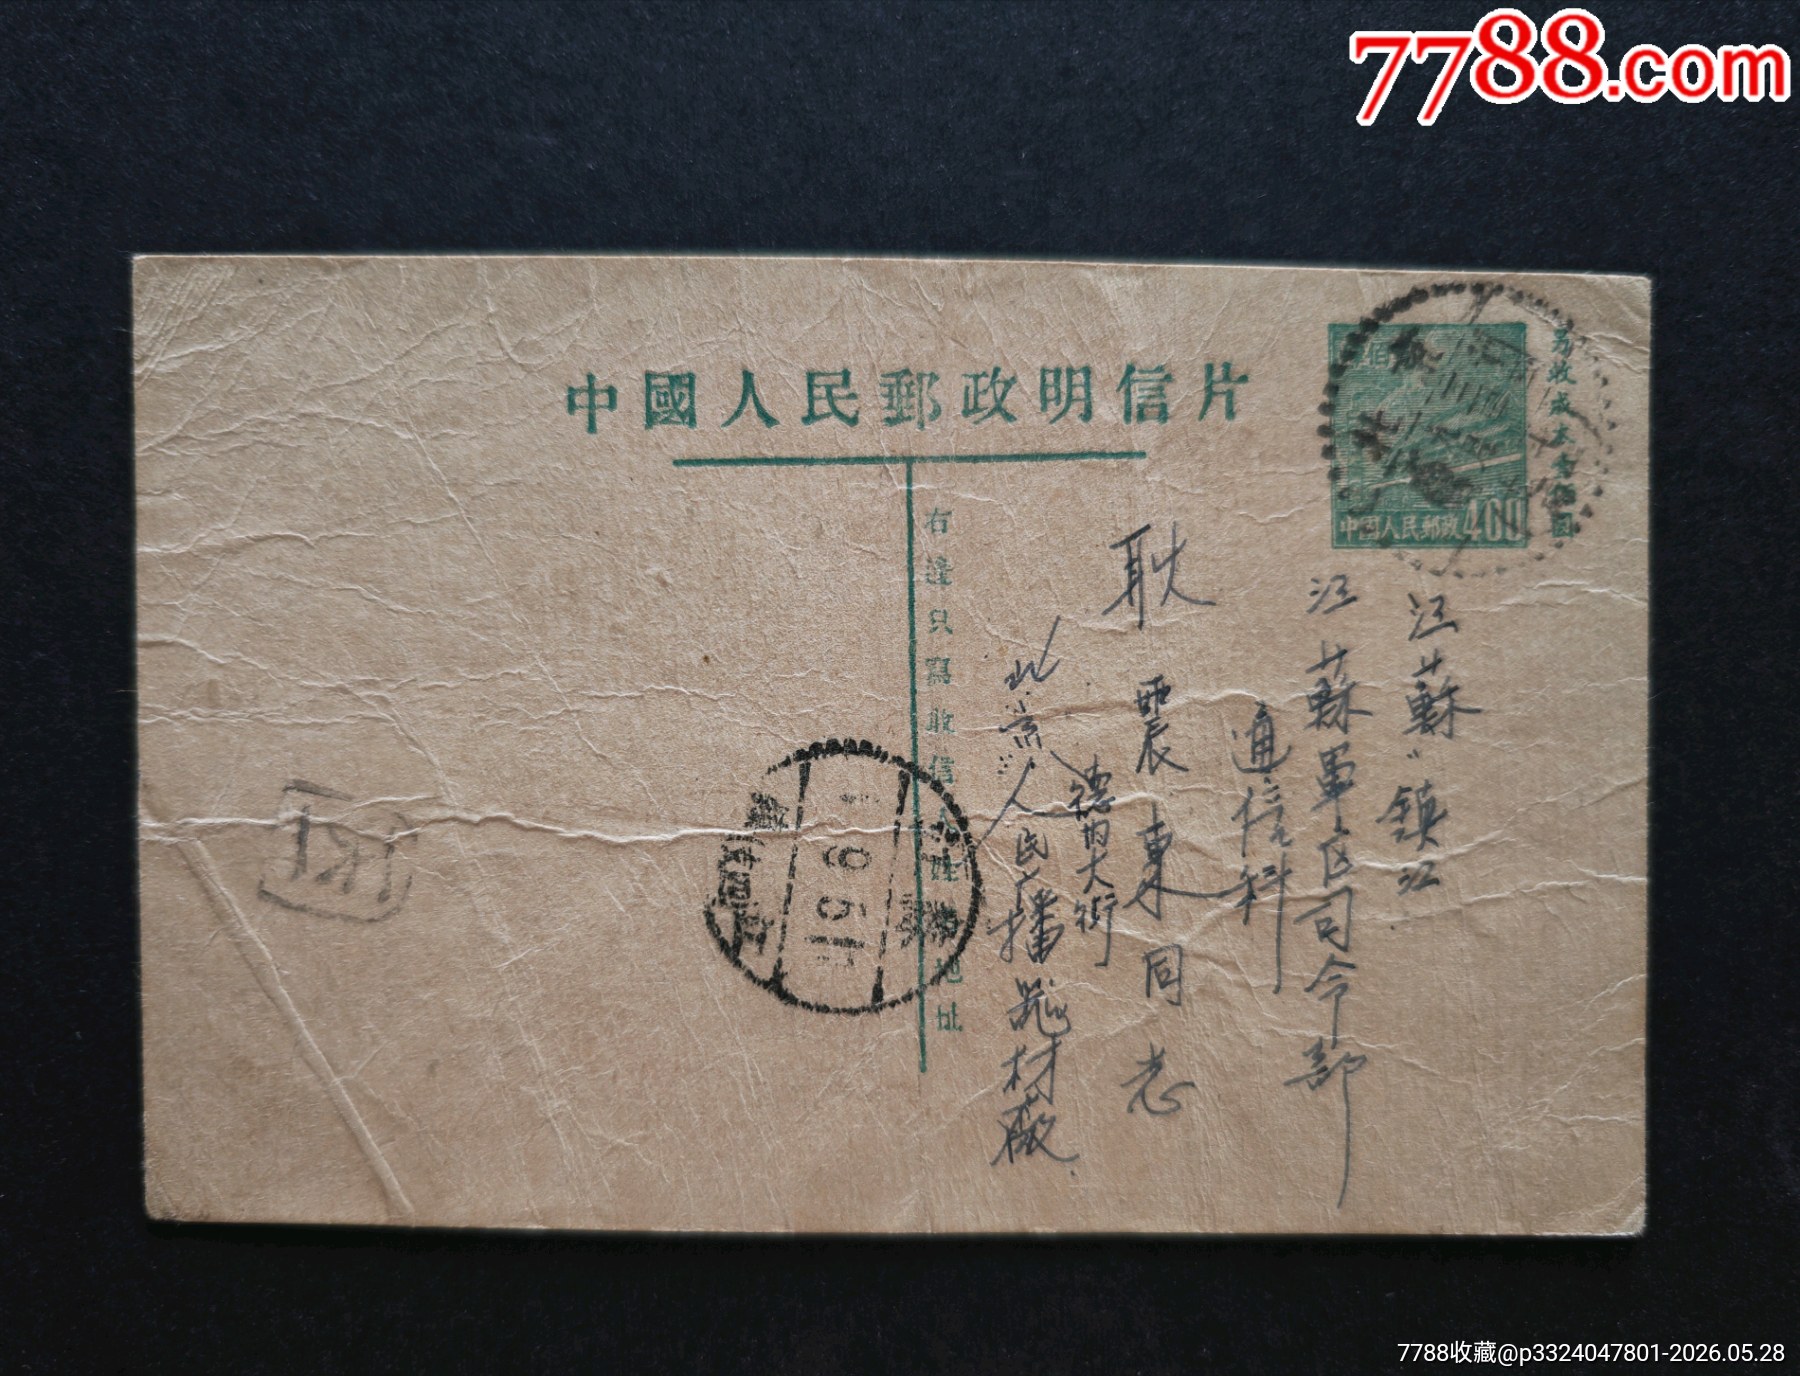 7788.com
中國人民郵政明信片
中國人民郵政400
右邊只寫收信人姓名地址
江蘇鎮江
江蘇軍区司令部
通信科
耿震東同志
德内大街
北京人民广播器材厰
北京
江蘇
7788收藏@p3324047801-2026.05.28